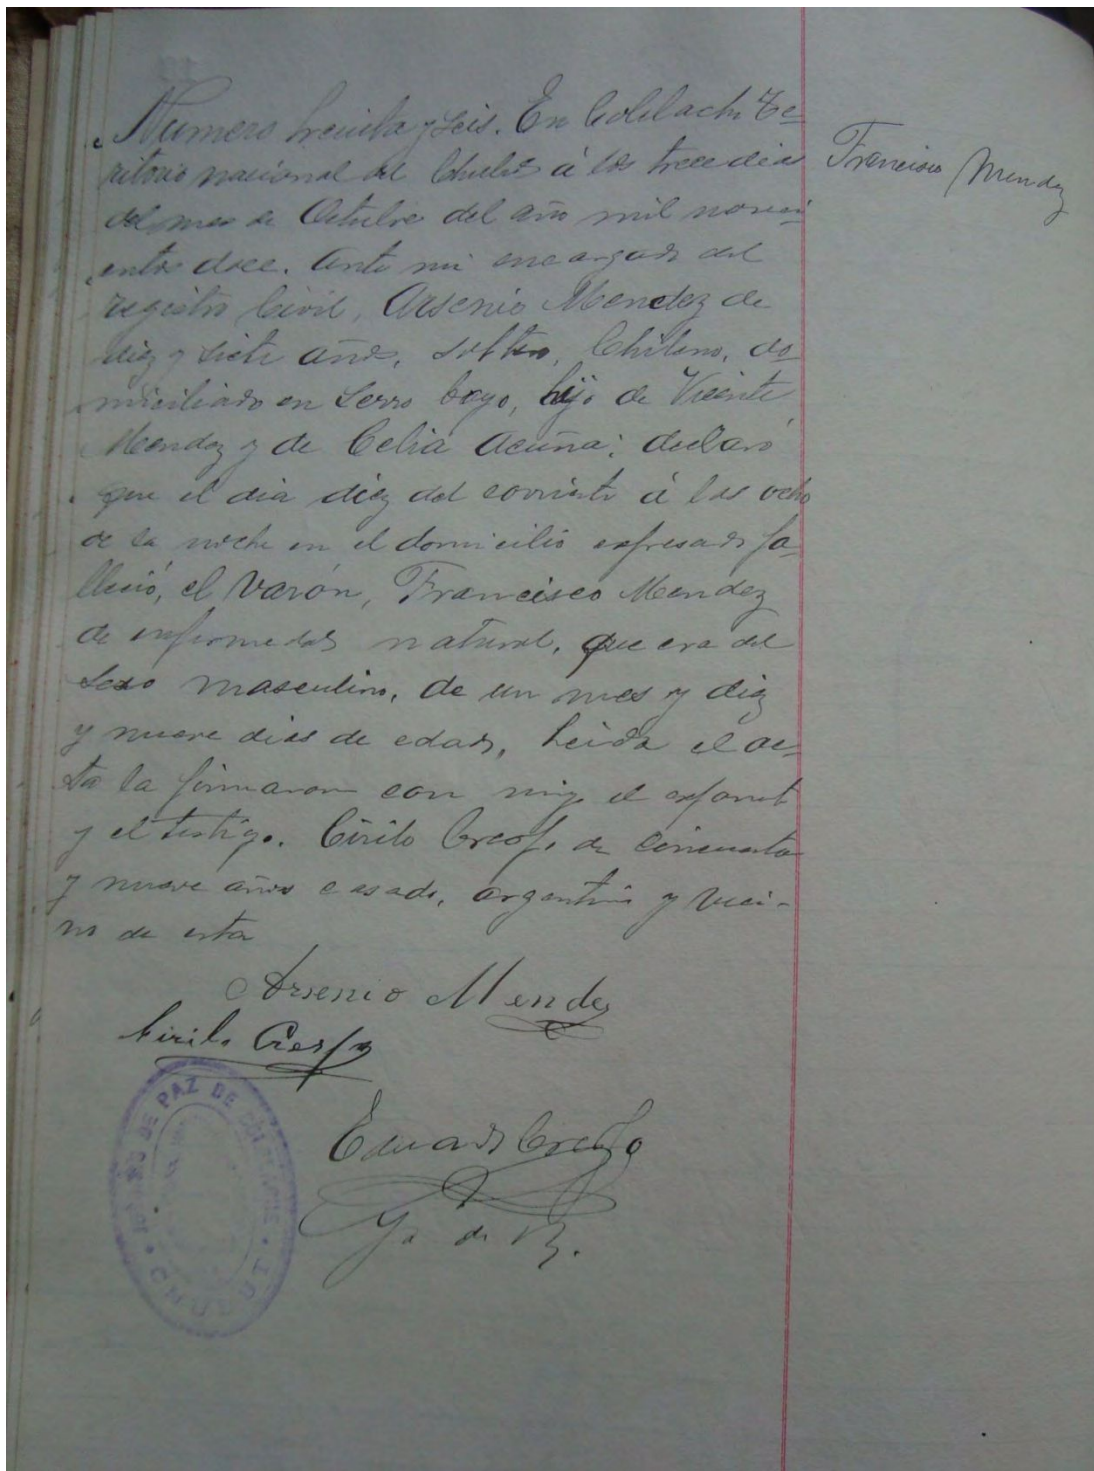 Numero treinta y seis. En Colelachi Te-
ritorio nacional del Chubut á los trece dias
del mes de Octubre del año mil noveci-
entos doce. Ante mi encargado del
registro Civil, Arsenio Mendez de
diez y siete años, soltero, Chileno, do-
miciliado en Serro bayo, hijo de Vicente
Mendez y de Celia Acuña; declaró
que el dia diez del corriente á las ocho
de la noche en el domicilio expresado fa-
lleció, el varón, Francisco Mendez
de enfermedad natural, que era del
sexo masculino, de un mes y diez
y nueve dias de edad, leida el ac-
ta la firmaron con migo el exponente
y el testigo. Cirilo Crespo, de cincuenta
y nueve años casado, argentino y veci-
no de esta
Francisco Mendez
Arsenio Mendez
Cirilo Crespo
Eduardo Crespo
J. de P.
JUZGADO DE PAZ DE
CHUBUT